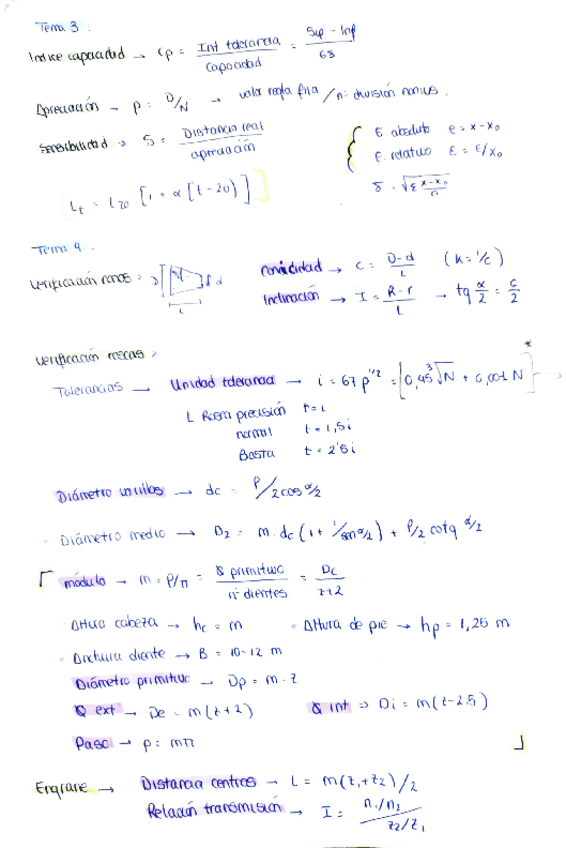 Tema 3.
Indice capacidad → Cp = Int tolerancia / Capacidad = Sup - Inf / 6S
Apreciación → p = D/N → valor regla fija / nº división nonius.
Sensibilidad → S = Distancia real / apreciación
E. absoluto e = x - x₀
E. relativo ε = E/x₀
Lt = L20 [1 + α [t - 20)]
Tema 4.
Verificación conos → D d L
conicidad → C = D-d / L (K = 1/c)
Inclinación → I = R-r / L → tg α/2 = C/2
Verificación roscas →
Tolerancias → Unidad tolerancia → i = 67 p^1/2 = [0,45 ³√N + 0,001 N] *
L Rosca precisión t = i
normal t = 1,5 i
Basta t = 2'5 i
Diámetro varillas → dc = P/2cos α/2
· Diámetro medio → D₂ = m · dc (1 + 1/sen α/2) + P/2 cotg α/2
módulo → m = P/π = Ø primitivo / nº dientes = De / z+2
· Altura cabeza → hc = m · Altura de pie → hp = 1,25 m
· Anchura diente → B = 10-12 m
Diámetro primitivo → Dp = m · z
Ø ext → De = m (z + 2) Ø int ⇒ Di = m (z - 2.5)
Paso → p = mπ
Engrane → Distancia centros → L = m (z₁ + z₂) / 2
Relación transmisión → I = n₁/n₂ / z₂/z₁